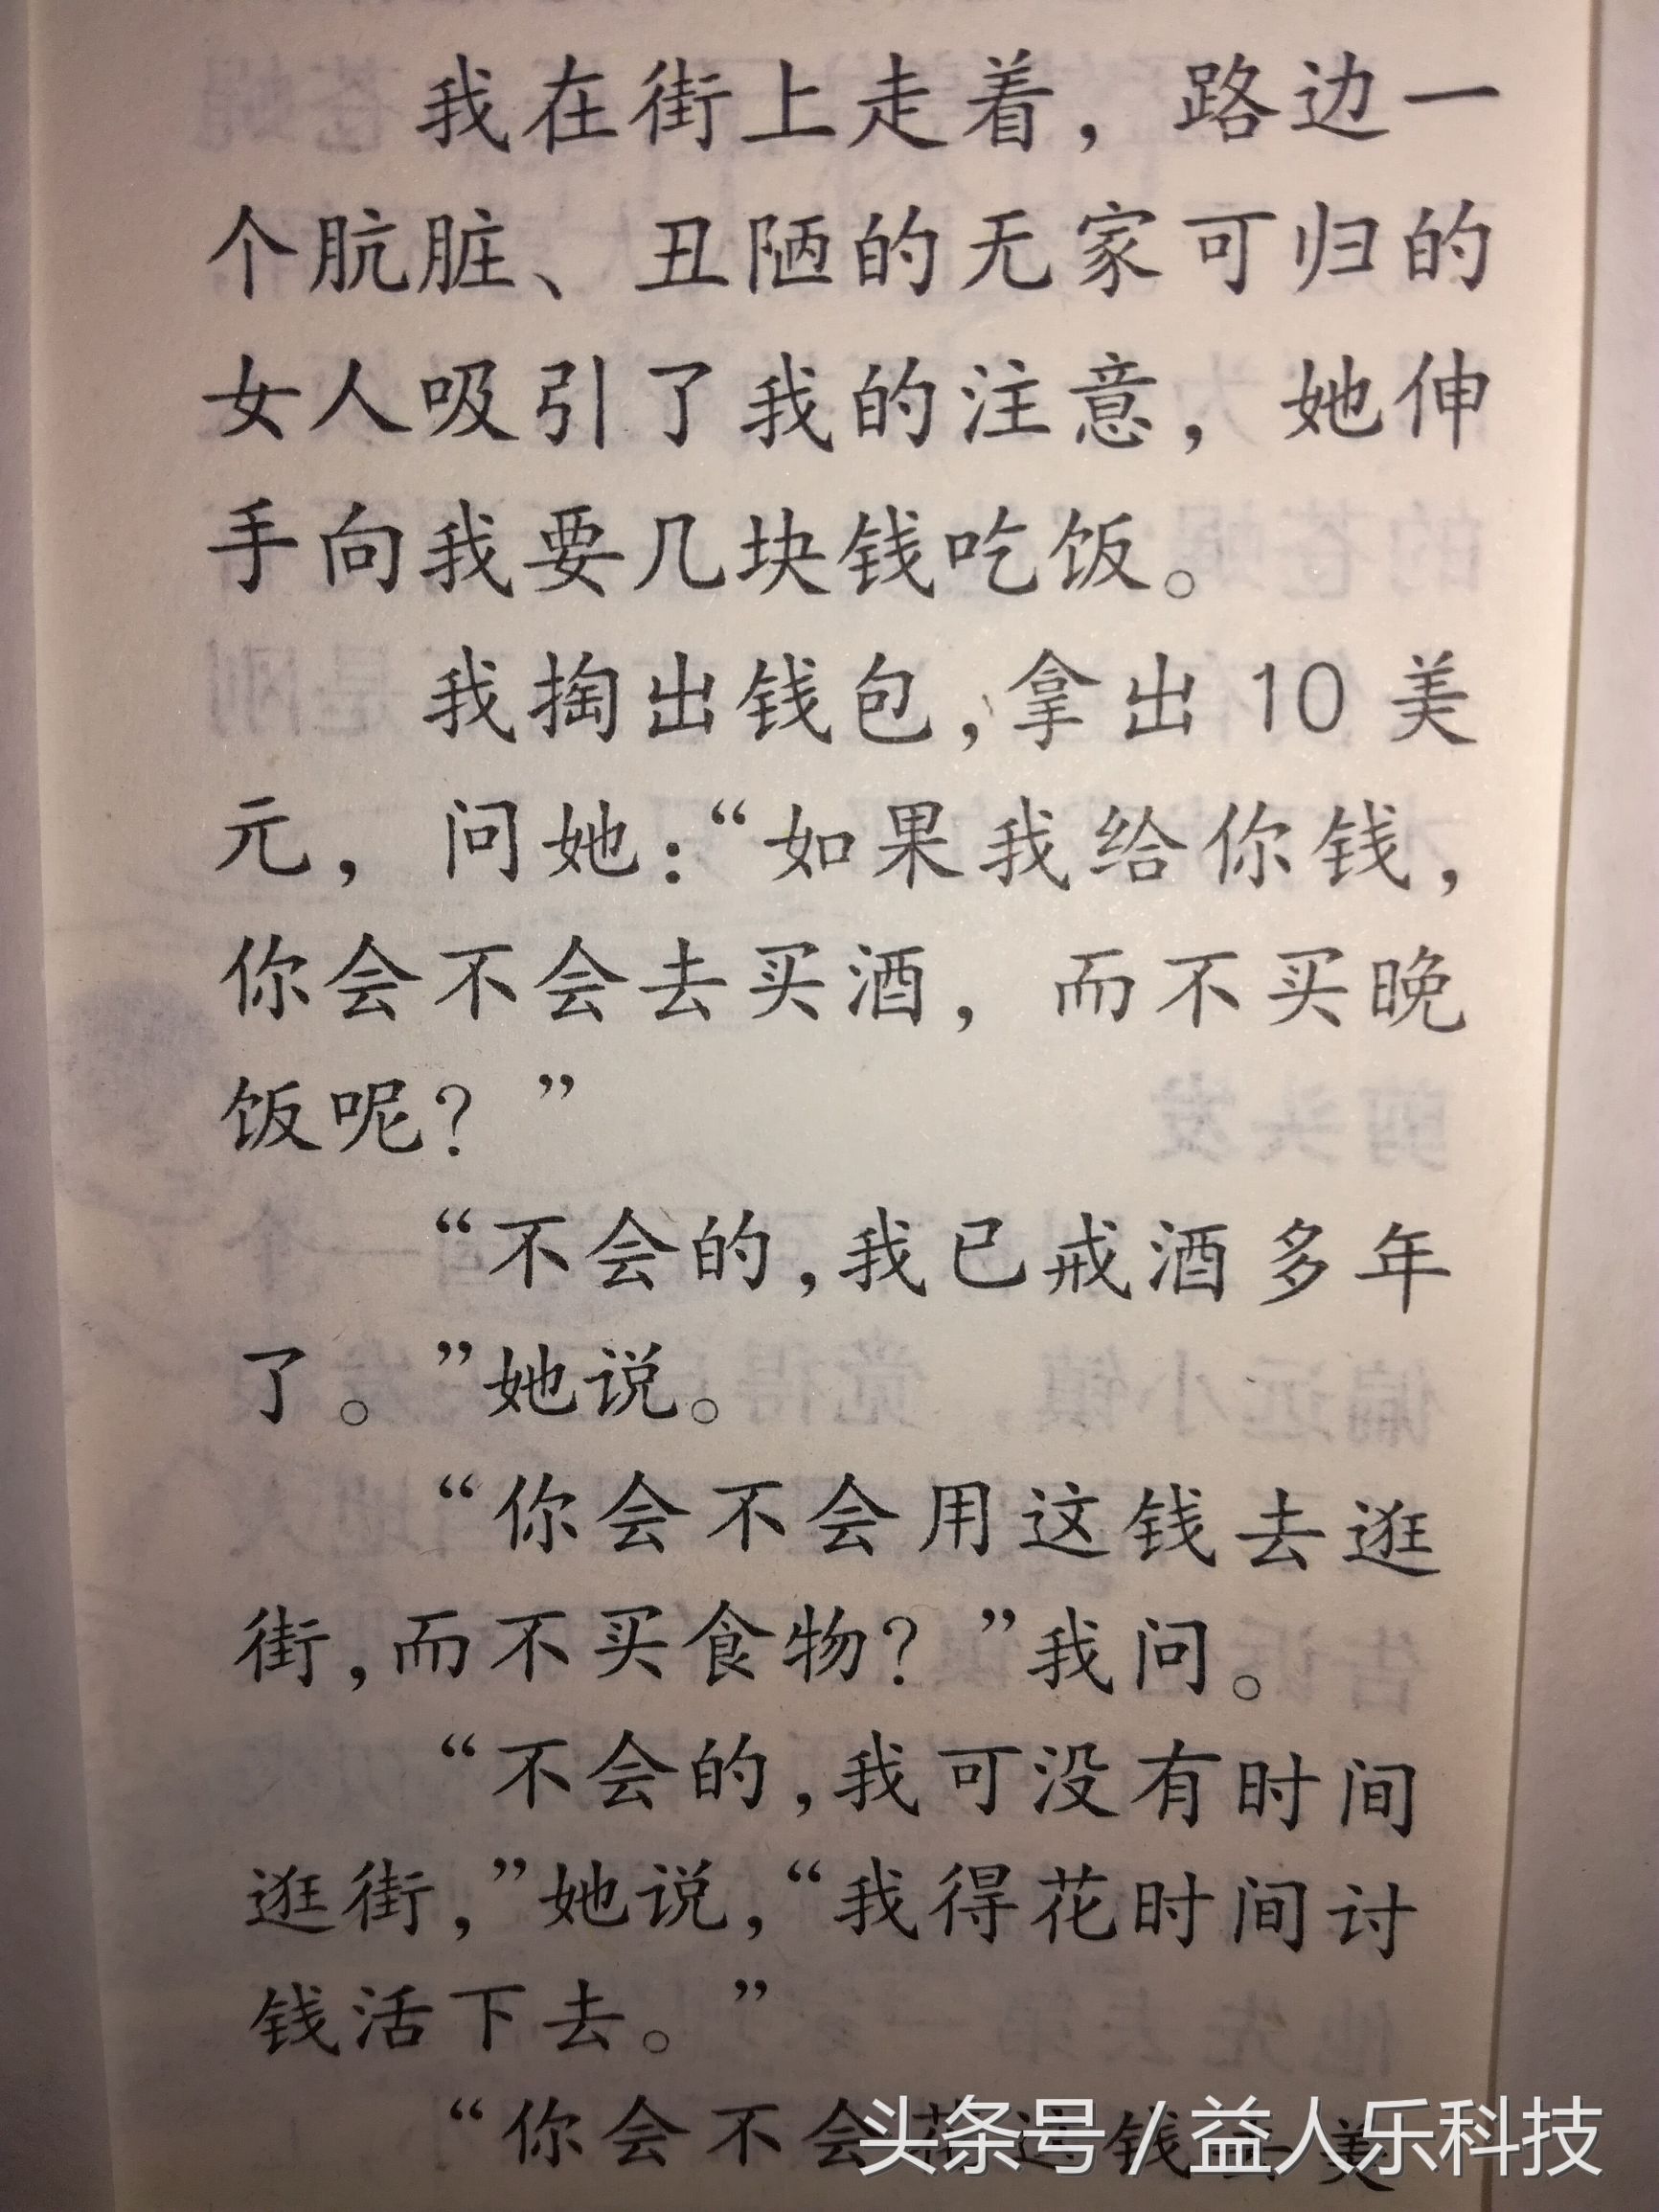 我在街上走着，路边一
个肮脏、丑陋的无家可归的
女人吸引了我的注意，她伸
手向我要几块钱吃饭。
我掏出钱包，拿出 10 美
元，问她：“如果我给你钱，
你会不会去买酒，而不买晚
饭呢？”
“不会的，我已戒酒多年
了。”她说。
“你会不会用这钱去逛
街，而不买食物？”我问。
“不会的，我可没有时间
逛街，”她说，“我得花时间讨
钱活下去。”
“你会不会花这钱去美
头条号 / 益人乐科技